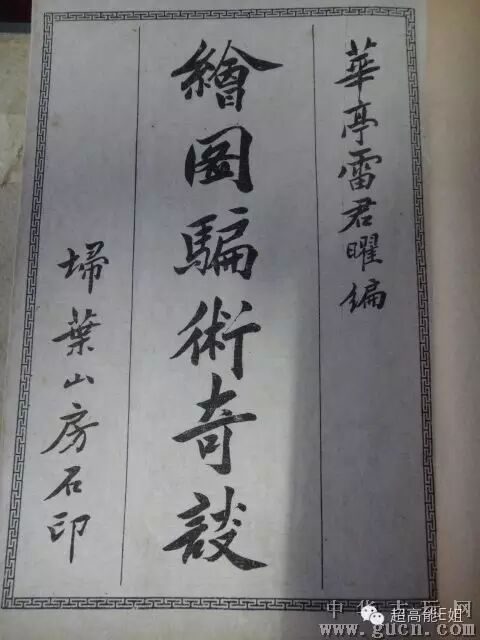 華亭雷君曜編
繪図騙術奇談
埽葉山房石印
超高能E姐
中华古玩网
www.gucn.com